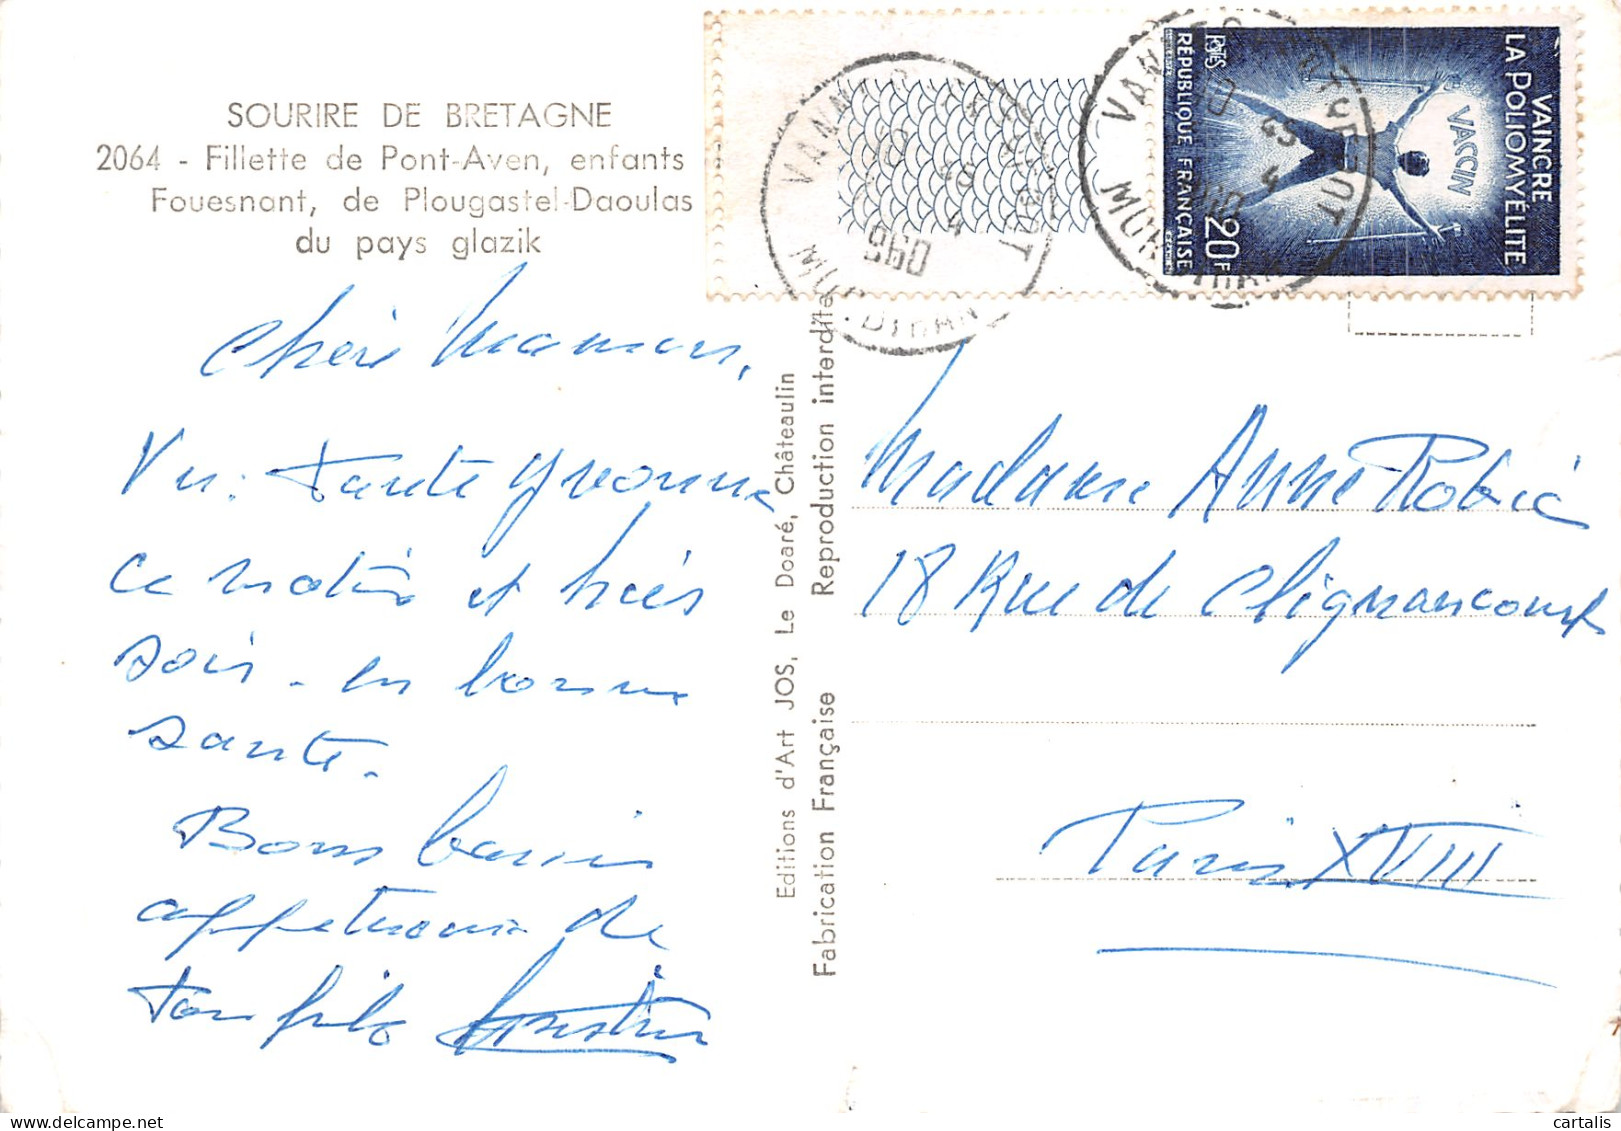 SOURIRE DE BRETAGNE
2064 - Fillette de Pont-Aven, enfants
Fouesnant, de Plougastel-Daoulas
du pays glazik
Chère Maman,
Vu. Tante Yvonne
ce matin et hier
soir. en bonne
santé.
Bons baisers
de
ton fils
Editions d'Art JOS, Le Doaré, Châteaulin
Fabrication Française Reproduction interdite
VANNES
MORBIHAN
1960
VANNES
MORBIHAN
POSTES
RÉPUBLIQUE FRANÇAISE
20F
VACCIN
VAINCRE
LA POLIOMYÉLITE
Madame Anne Robic
18 Rue de Clignancourt
Paris XVIII
cartalis